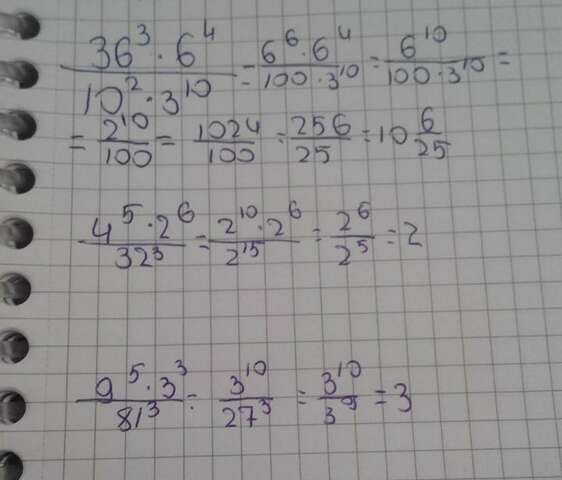 36³ · 6⁴ / 10² · 3¹⁰ = 6⁶ · 6⁴ / 100 · 3¹⁰ = 6¹⁰ / 100 · 3¹⁰ =
= 2¹⁰ / 100 = 1024 / 100 = 256 / 25 = 10 6/25
4⁵ · 2⁶ / 32³ = 2¹⁰ · 2⁶ / 2¹⁵ = 2⁶ / 2⁵ = 2
9⁵ · 3³ / 81³ = 3¹⁰ / 27³ = 3¹⁰ / 3⁹ = 3